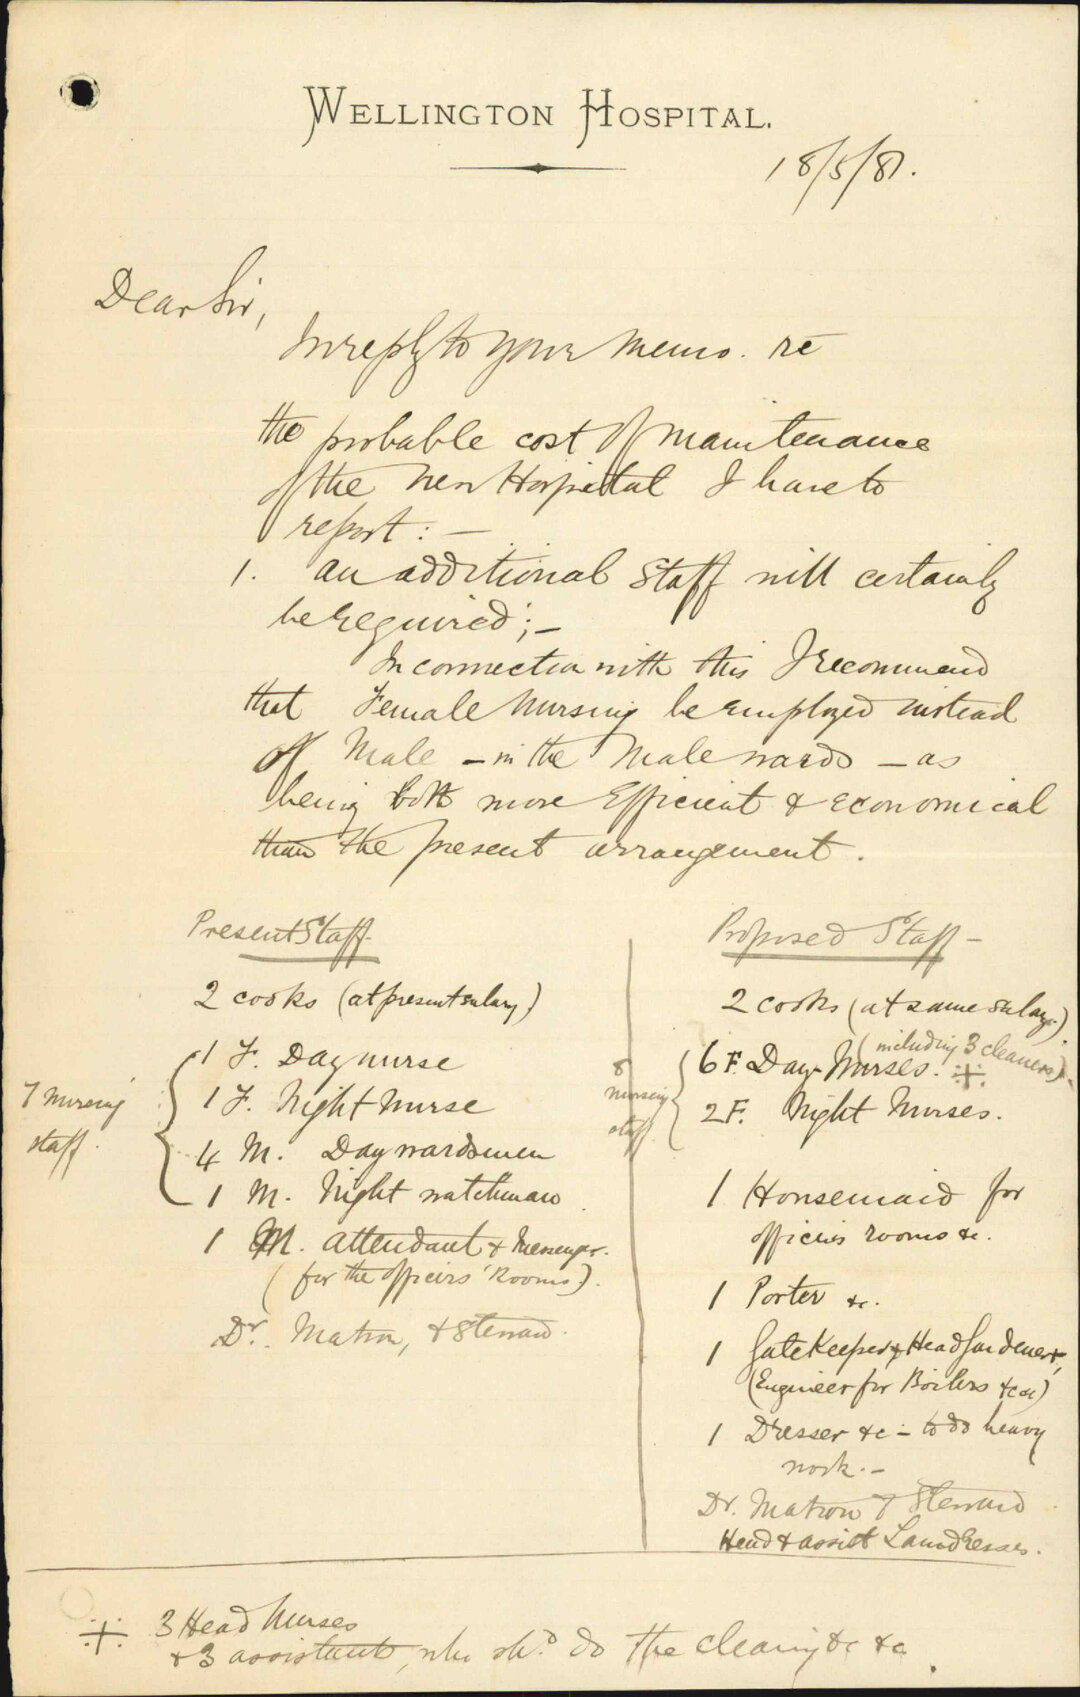 WELLINGTON HOSPITAL.
18/5/81.
Dear Sir,
In reply to your memo. re
the probable cost of maintenance
of the new Hospital I have to
report: —
1. an additional Staff will certainly
be required; —
In connection with this I recommend
that Female Nursing be employed instead
of Male — in the Male wards — as
being both more Efficient & economical
than the present arrangement.
Present Staff
2 cooks (at present salary)
1 F. Day nurse
1 F. Night Nurse
7 Nursing
staff.
4 M. Day wardsmen
1 M. Night watchman
1 M. attendant & Messenger.
(for the officers' Rooms).
Dr. Matron, & Steward.
Proposed Staff —
2 cooks (at same salary.)
(including 3 cleaners)
6 F. Day-Nurses. ⁜
8
nursing
staff
2 F. Night Nurses.
1 Housemaid for
officers rooms &c.
1 Porter &c.
1 Gate Keeper & Head Gardener &,
(Engineer for Boilers &c &c)
1 Dresser &c — to do heavy
work. —
Dr. Matron & Steward
Head & assist Laundresses.
⁜ 3 Head Nurses
& 3 assistants, who shd. do the cleaning &c &c.